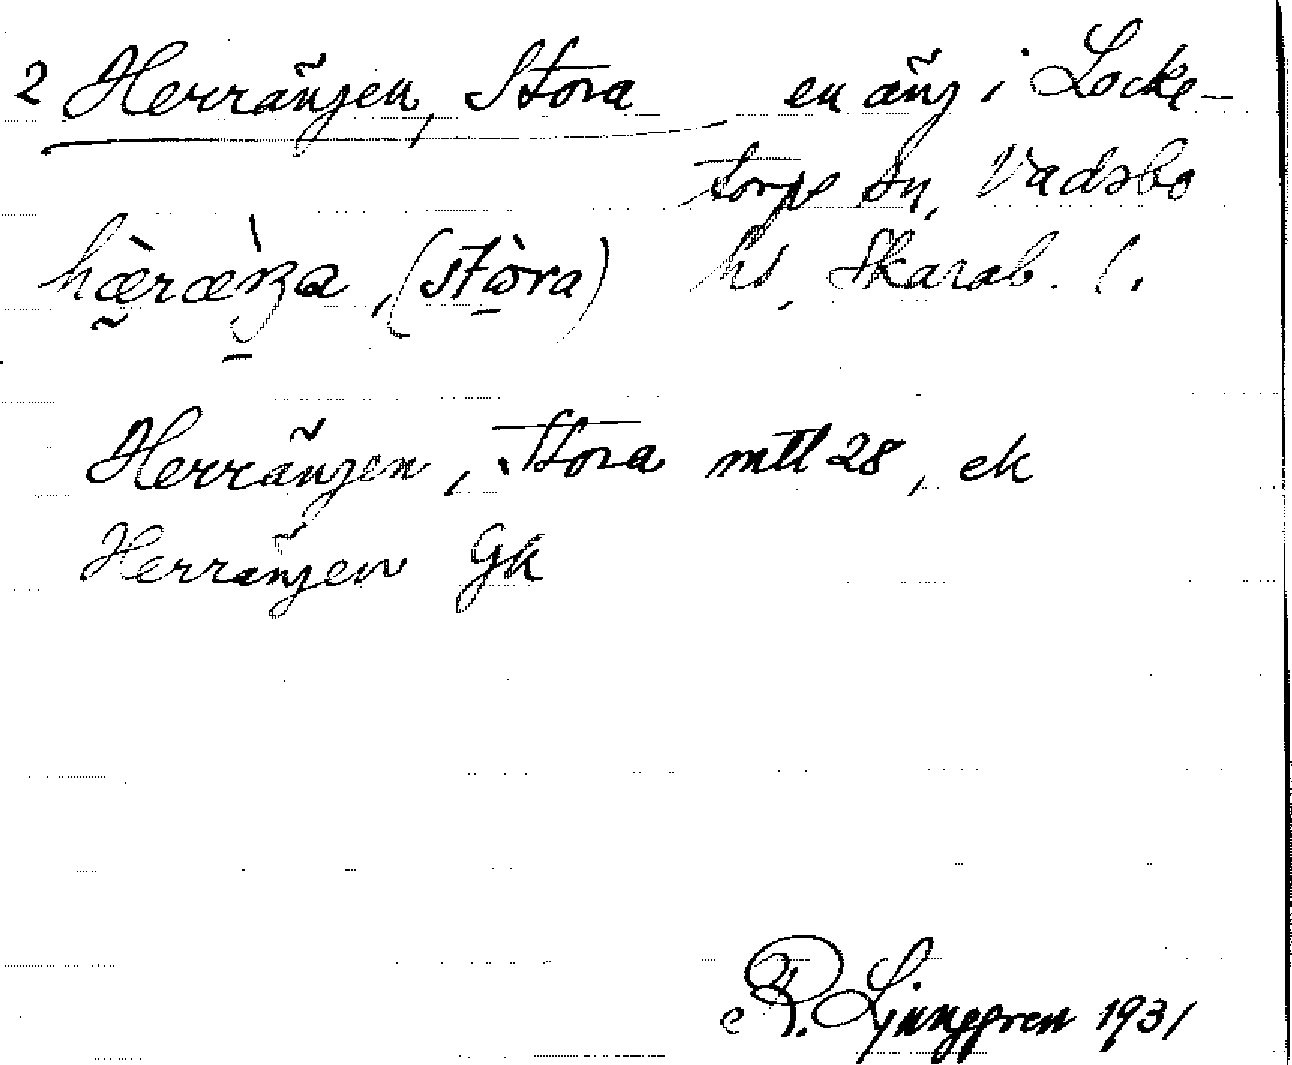 2 Herrängen, Stora en äng i Locke-
torps sn, Vadsbo
hæ̀ræ̀ŋa, (stòra) hd, Skarab. l.
Herrängen, Stora mtl 28, ek
Herrängen Gk
R. Ljunggren 1931